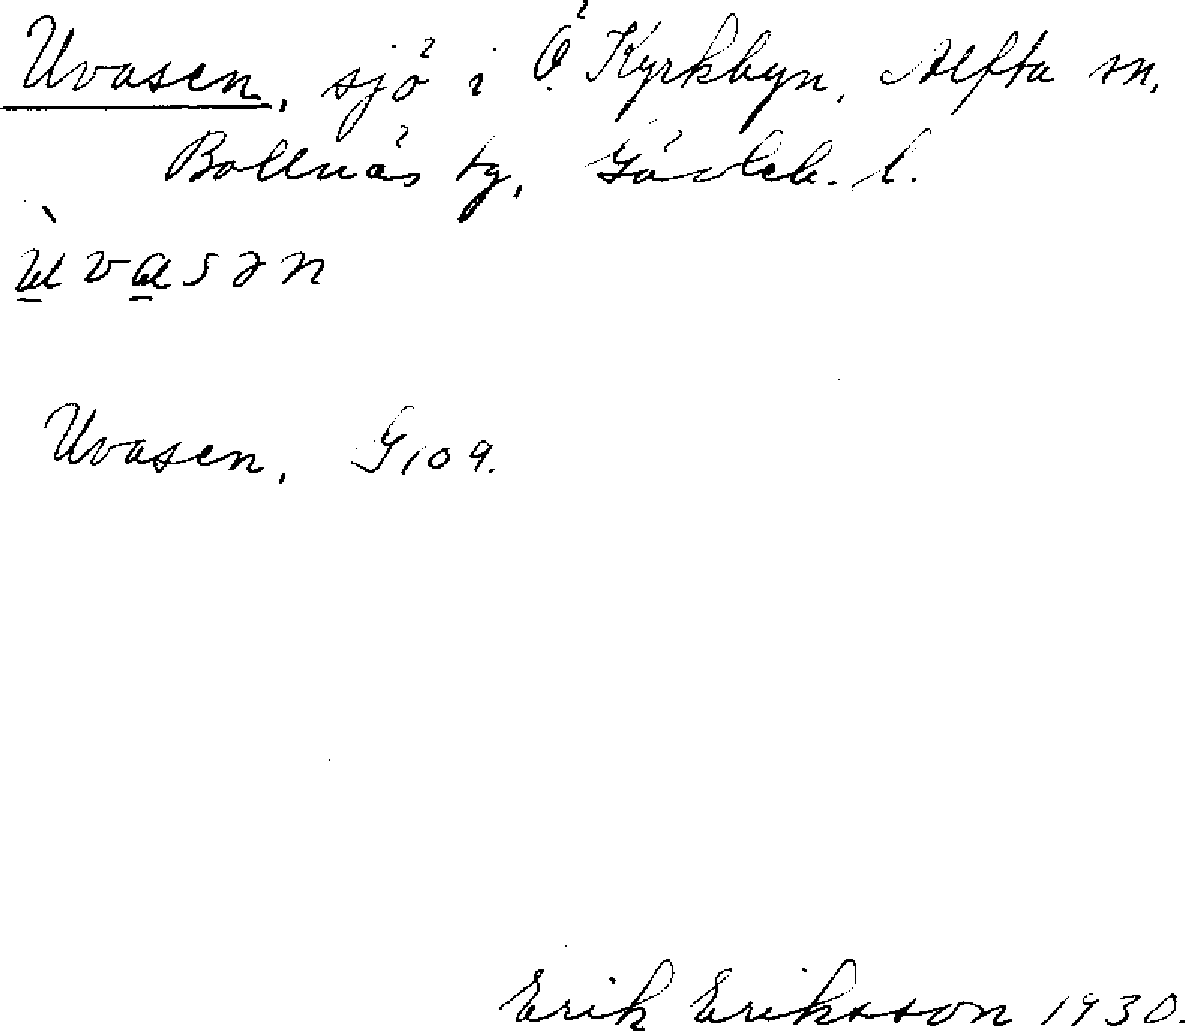 Uvasen, sjö i Ö. Kyrkbyn, Alfta sn,
Bollnäs tg, Gävleb. l.
ùvasən
Uvasen, G109.
Erik Eriksson 1930.